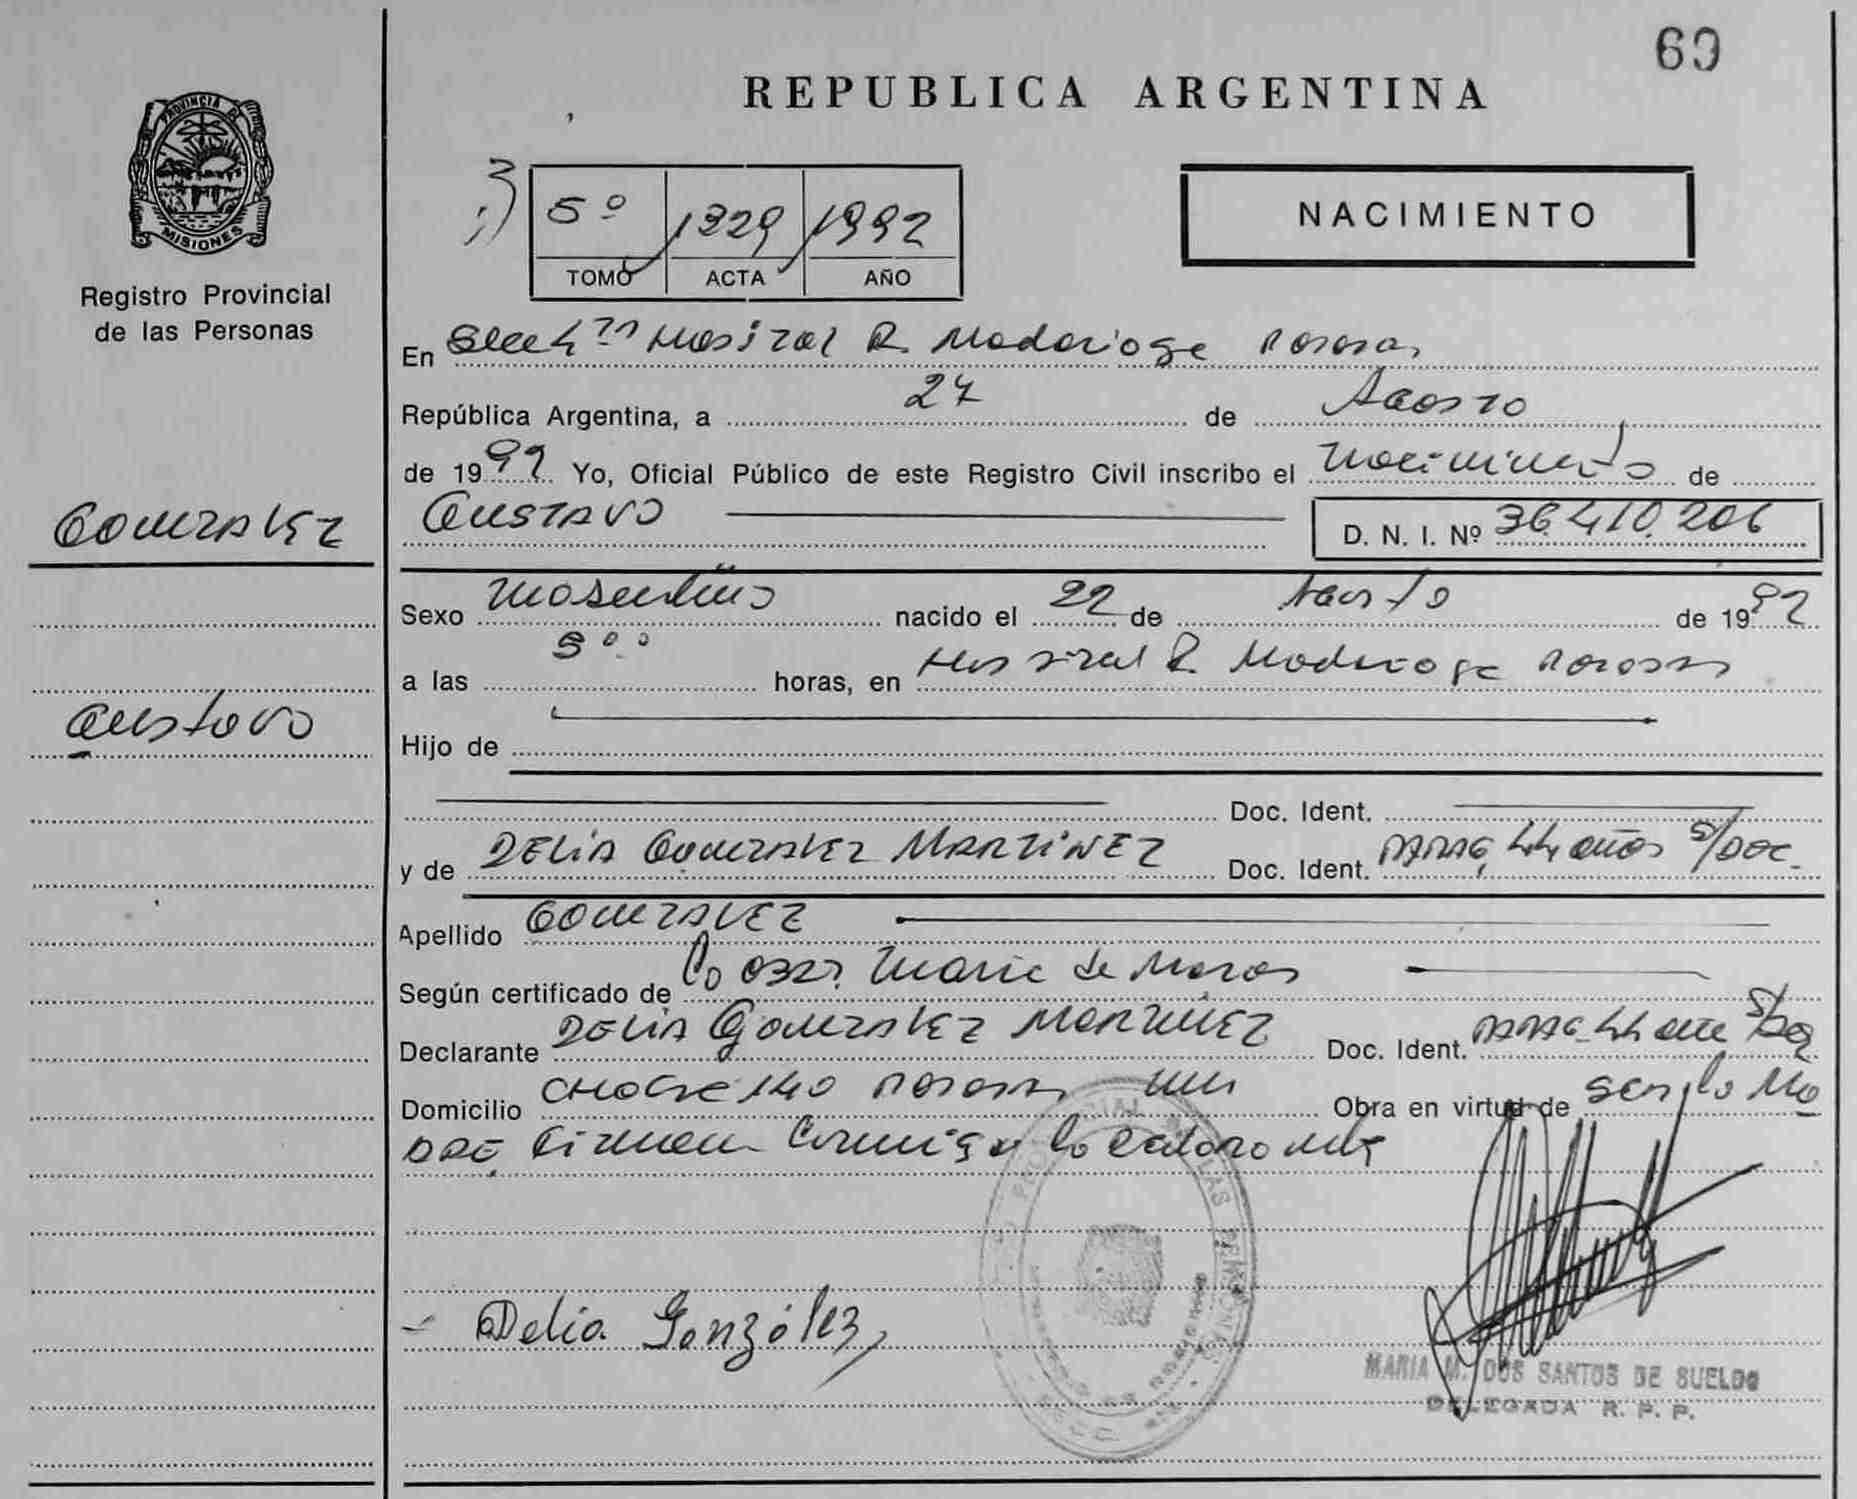 69
REPUBLICA ARGENTINA
PROVINCIA DE
MISIONES
Registro Provincial
de las Personas
5º 1329 1992
TOMO ACTA AÑO
NACIMIENTO
En Hospital R. Madariaga Posadas
República Argentina, a 27 de Agosto
de 1992 Yo, Oficial Público de este Registro Civil inscribo el nacimiento de
GONZALEZ
GUSTAVO D. N. I. Nº 36.410.206
Sexo masculino nacido el 22 de Agosto de 1992
a las horas, en Hospital R. Madariaga Posadas
Gustavo
Hijo de
Doc. Ident.
y de DELIA GONZALEZ MARTINEZ Doc. Ident. PARAG, 44 años S/DOC.
Apellido GONZALEZ
Según certificado de Maria de
Declarante DELIA GONZALEZ MARTINEZ Doc. Ident. PARAG. 44 S/Doc
Domicilio 140 Posadas Obra en virtud de ser la Ma
DRE, Firman Conmigo la
Delia González
MARIA M. DOS SANTOS DE SUELDO
DELEGADA R. P. P.